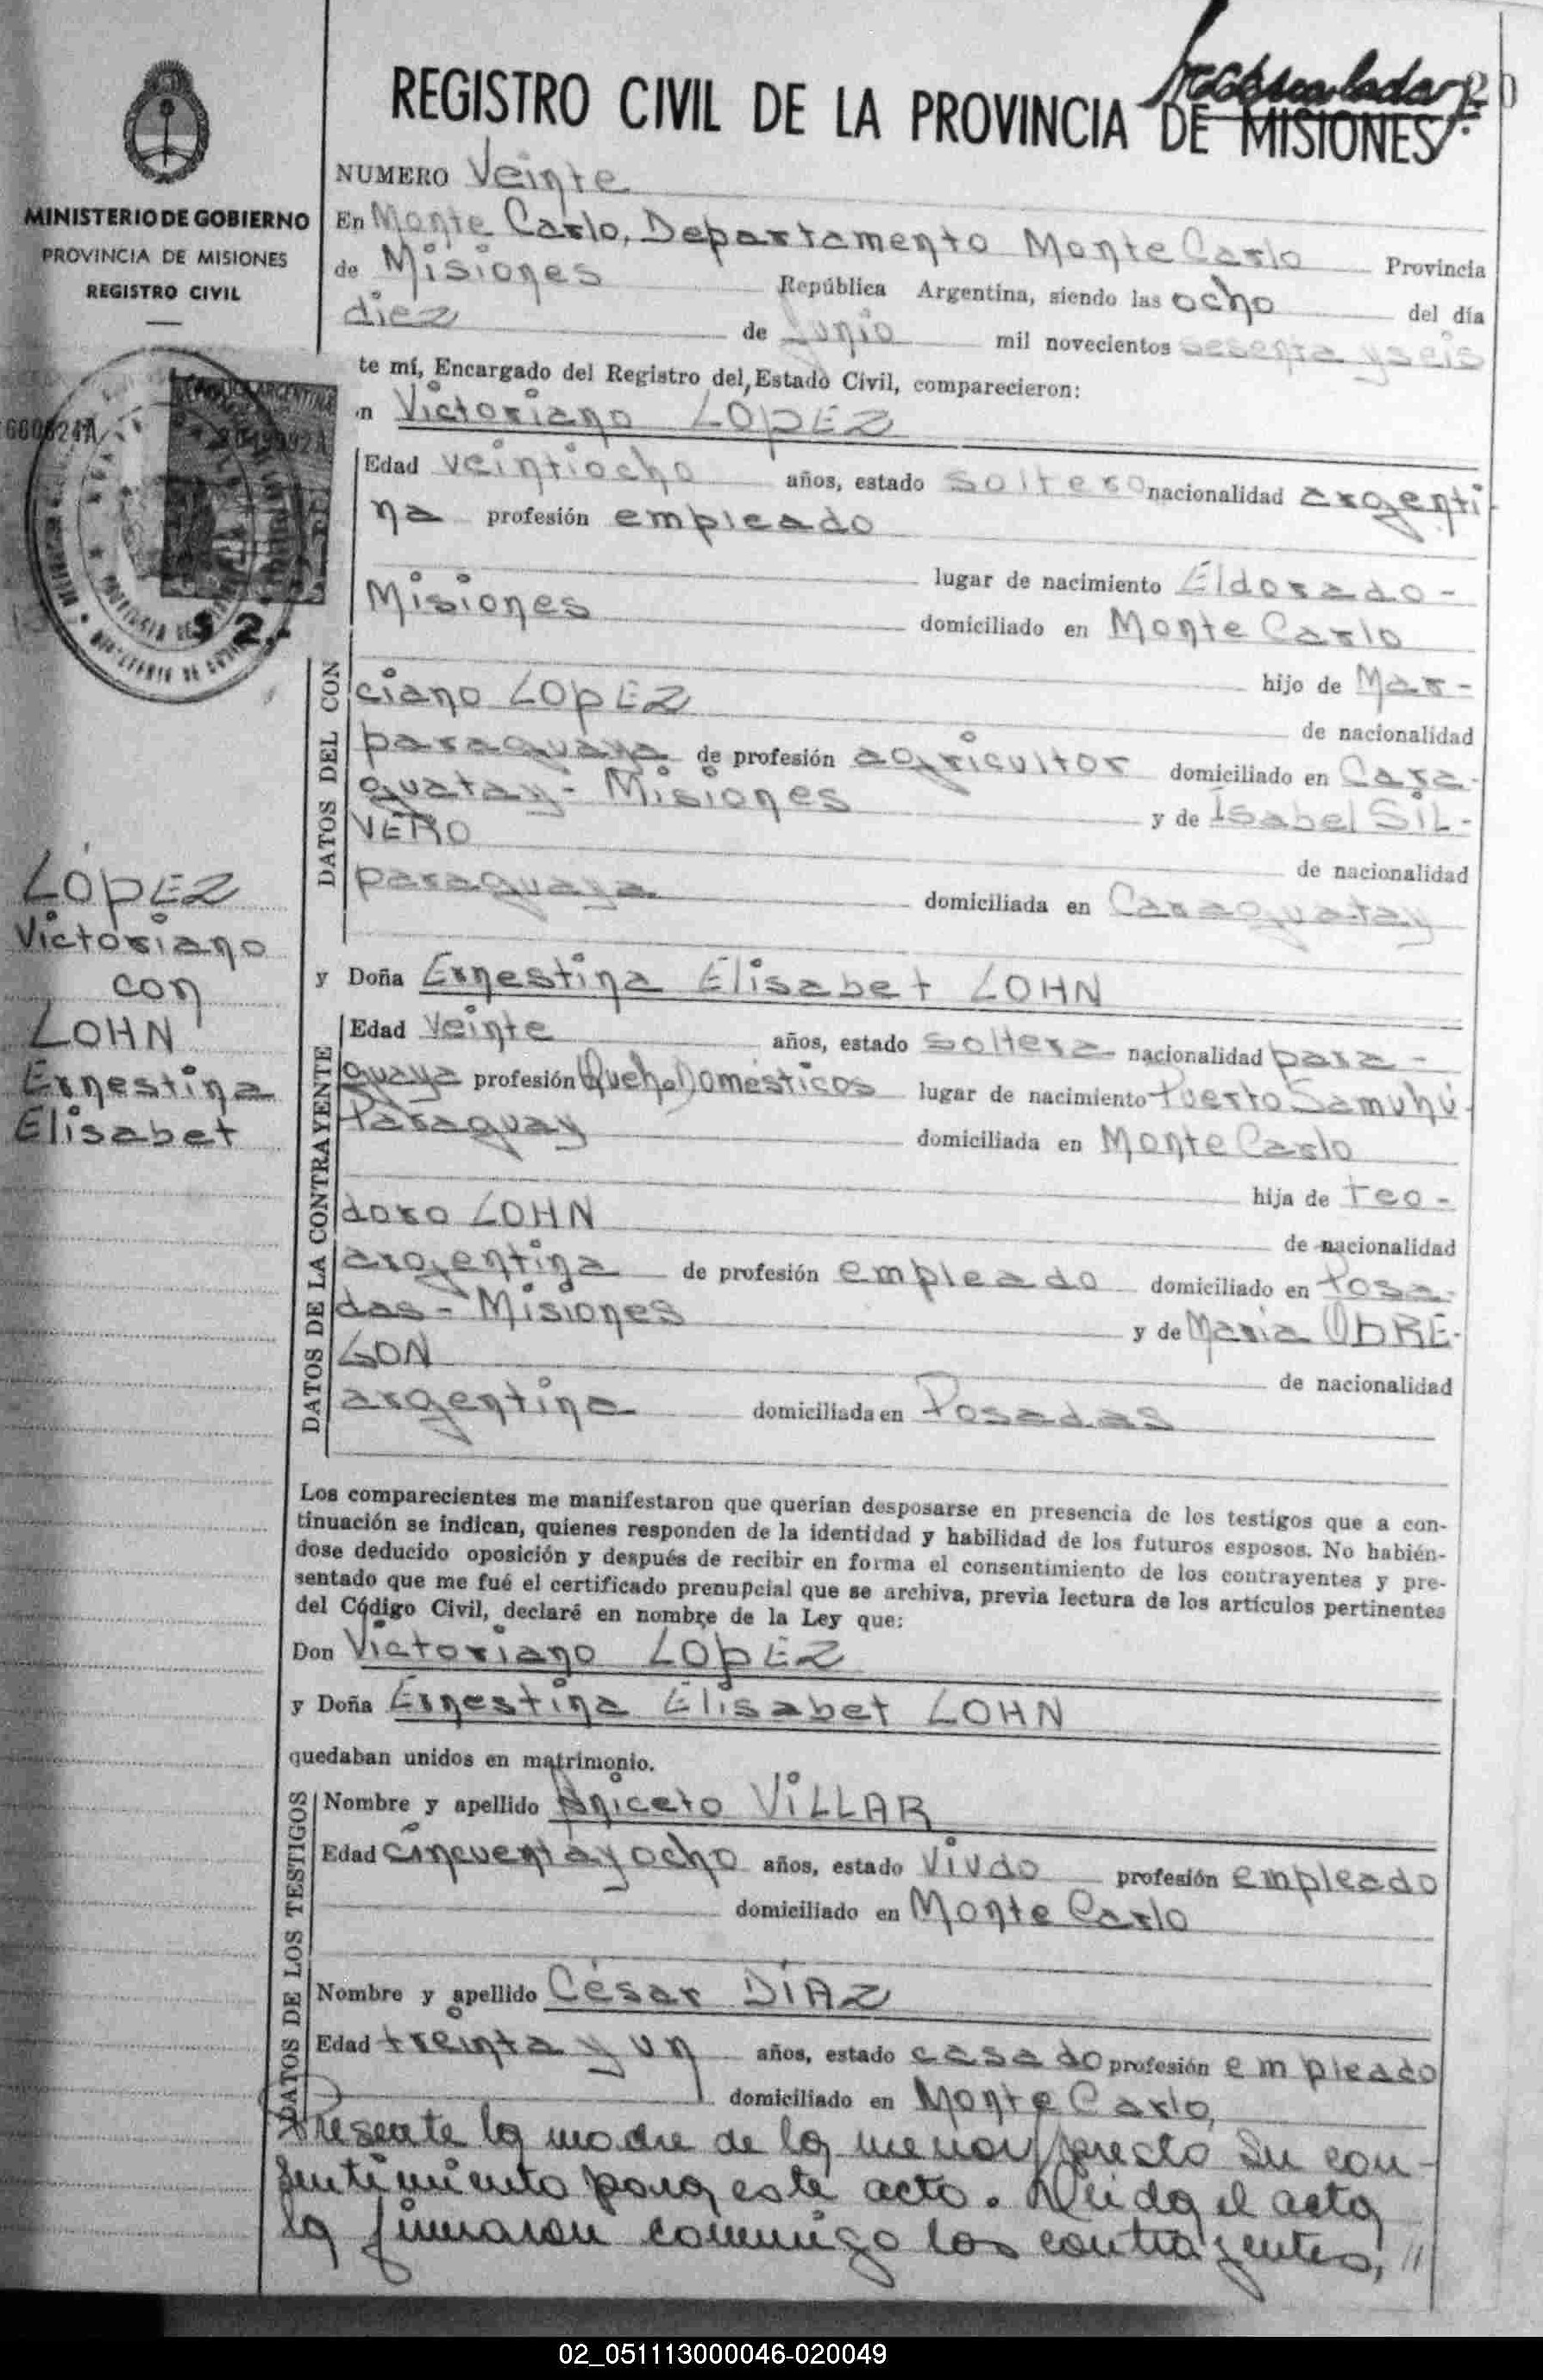 REGISTRO CIVIL DE LA PROVINCIA DE MISIONES
20
MINISTERIO DE GOBIERNO
PROVINCIA DE MISIONES
REGISTRO CIVIL
NUMERO Veinte
En Monte Carlo, Departamento Monte Carlo Provincia
de Misiones República Argentina, siendo las ocho del día
diez de Junio mil novecientos sesenta y seis
te mí, Encargado del Registro del Estado Civil, comparecieron:
n Victoriano LOPEZ
Edad veintiocho años, estado soltero nacionalidad argenti-
na profesión empleado
lugar de nacimiento Eldorado-
Misiones domiciliado en Monte Carlo
hijo de Mar-
ciano LOPEZ de nacionalidad
paraguaya de profesión agricultor domiciliado en Cara-
guatay- Misiones y de Isabel SIL-
VERO de nacionalidad
paraguaya domiciliada en Caraguatay
DATOS DEL CON
LOPEZ
Victoriano
con
LOHN
Ernestina
Elisabet
y Doña Ernestina Elisabet LOHN
Edad Veinte años, estado soltera nacionalidad para-
guaya profesión Queh. Domésticos lugar de nacimiento Puerto Samuhú-
Paraguay domiciliada en Monte Carlo
hija de Teo-
doro LOHN de nacionalidad
argentina de profesión empleado domiciliado en Posa-
das- Misiones y de Maria OBRE-
GON de nacionalidad
argentina domiciliada en Posadas
DATOS DE LA CONTRAYENTE
Los comparecientes me manifestaron que querían desposarse en presencia de los testigos que a con-
tinuación se indican, quienes responden de la identidad y habilidad de los futuros esposos. No habién-
dose deducido oposición y después de recibir en forma el consentimiento de los contrayentes y pre-
sentado que me fué el certificado prenupcial que se archiva, previa lectura de los artículos pertinentes
del Código Civil, declaré en nombre de la Ley que:
Don Victoriano LOPEZ
y Doña Ernestina Elisabet LOHN
quedaban unidos en matrimonio.
Nombre y apellido Aniceto VILLAR
Edad cincuenta y ocho años, estado Viudo profesión empleado
domiciliado en Monte Carlo
Nombre y apellido César DÍAZ
Edad treinta y un años, estado casado profesión empleado
domiciliado en Monte Carlo,
DATOS DE LOS TESTIGOS
Presente la madre de la menor presto su con-
sentimiento para este acto. Leida el acta
la firmaron conmigo los contrayentes, //
$ 2.-
02_051113000046-020049